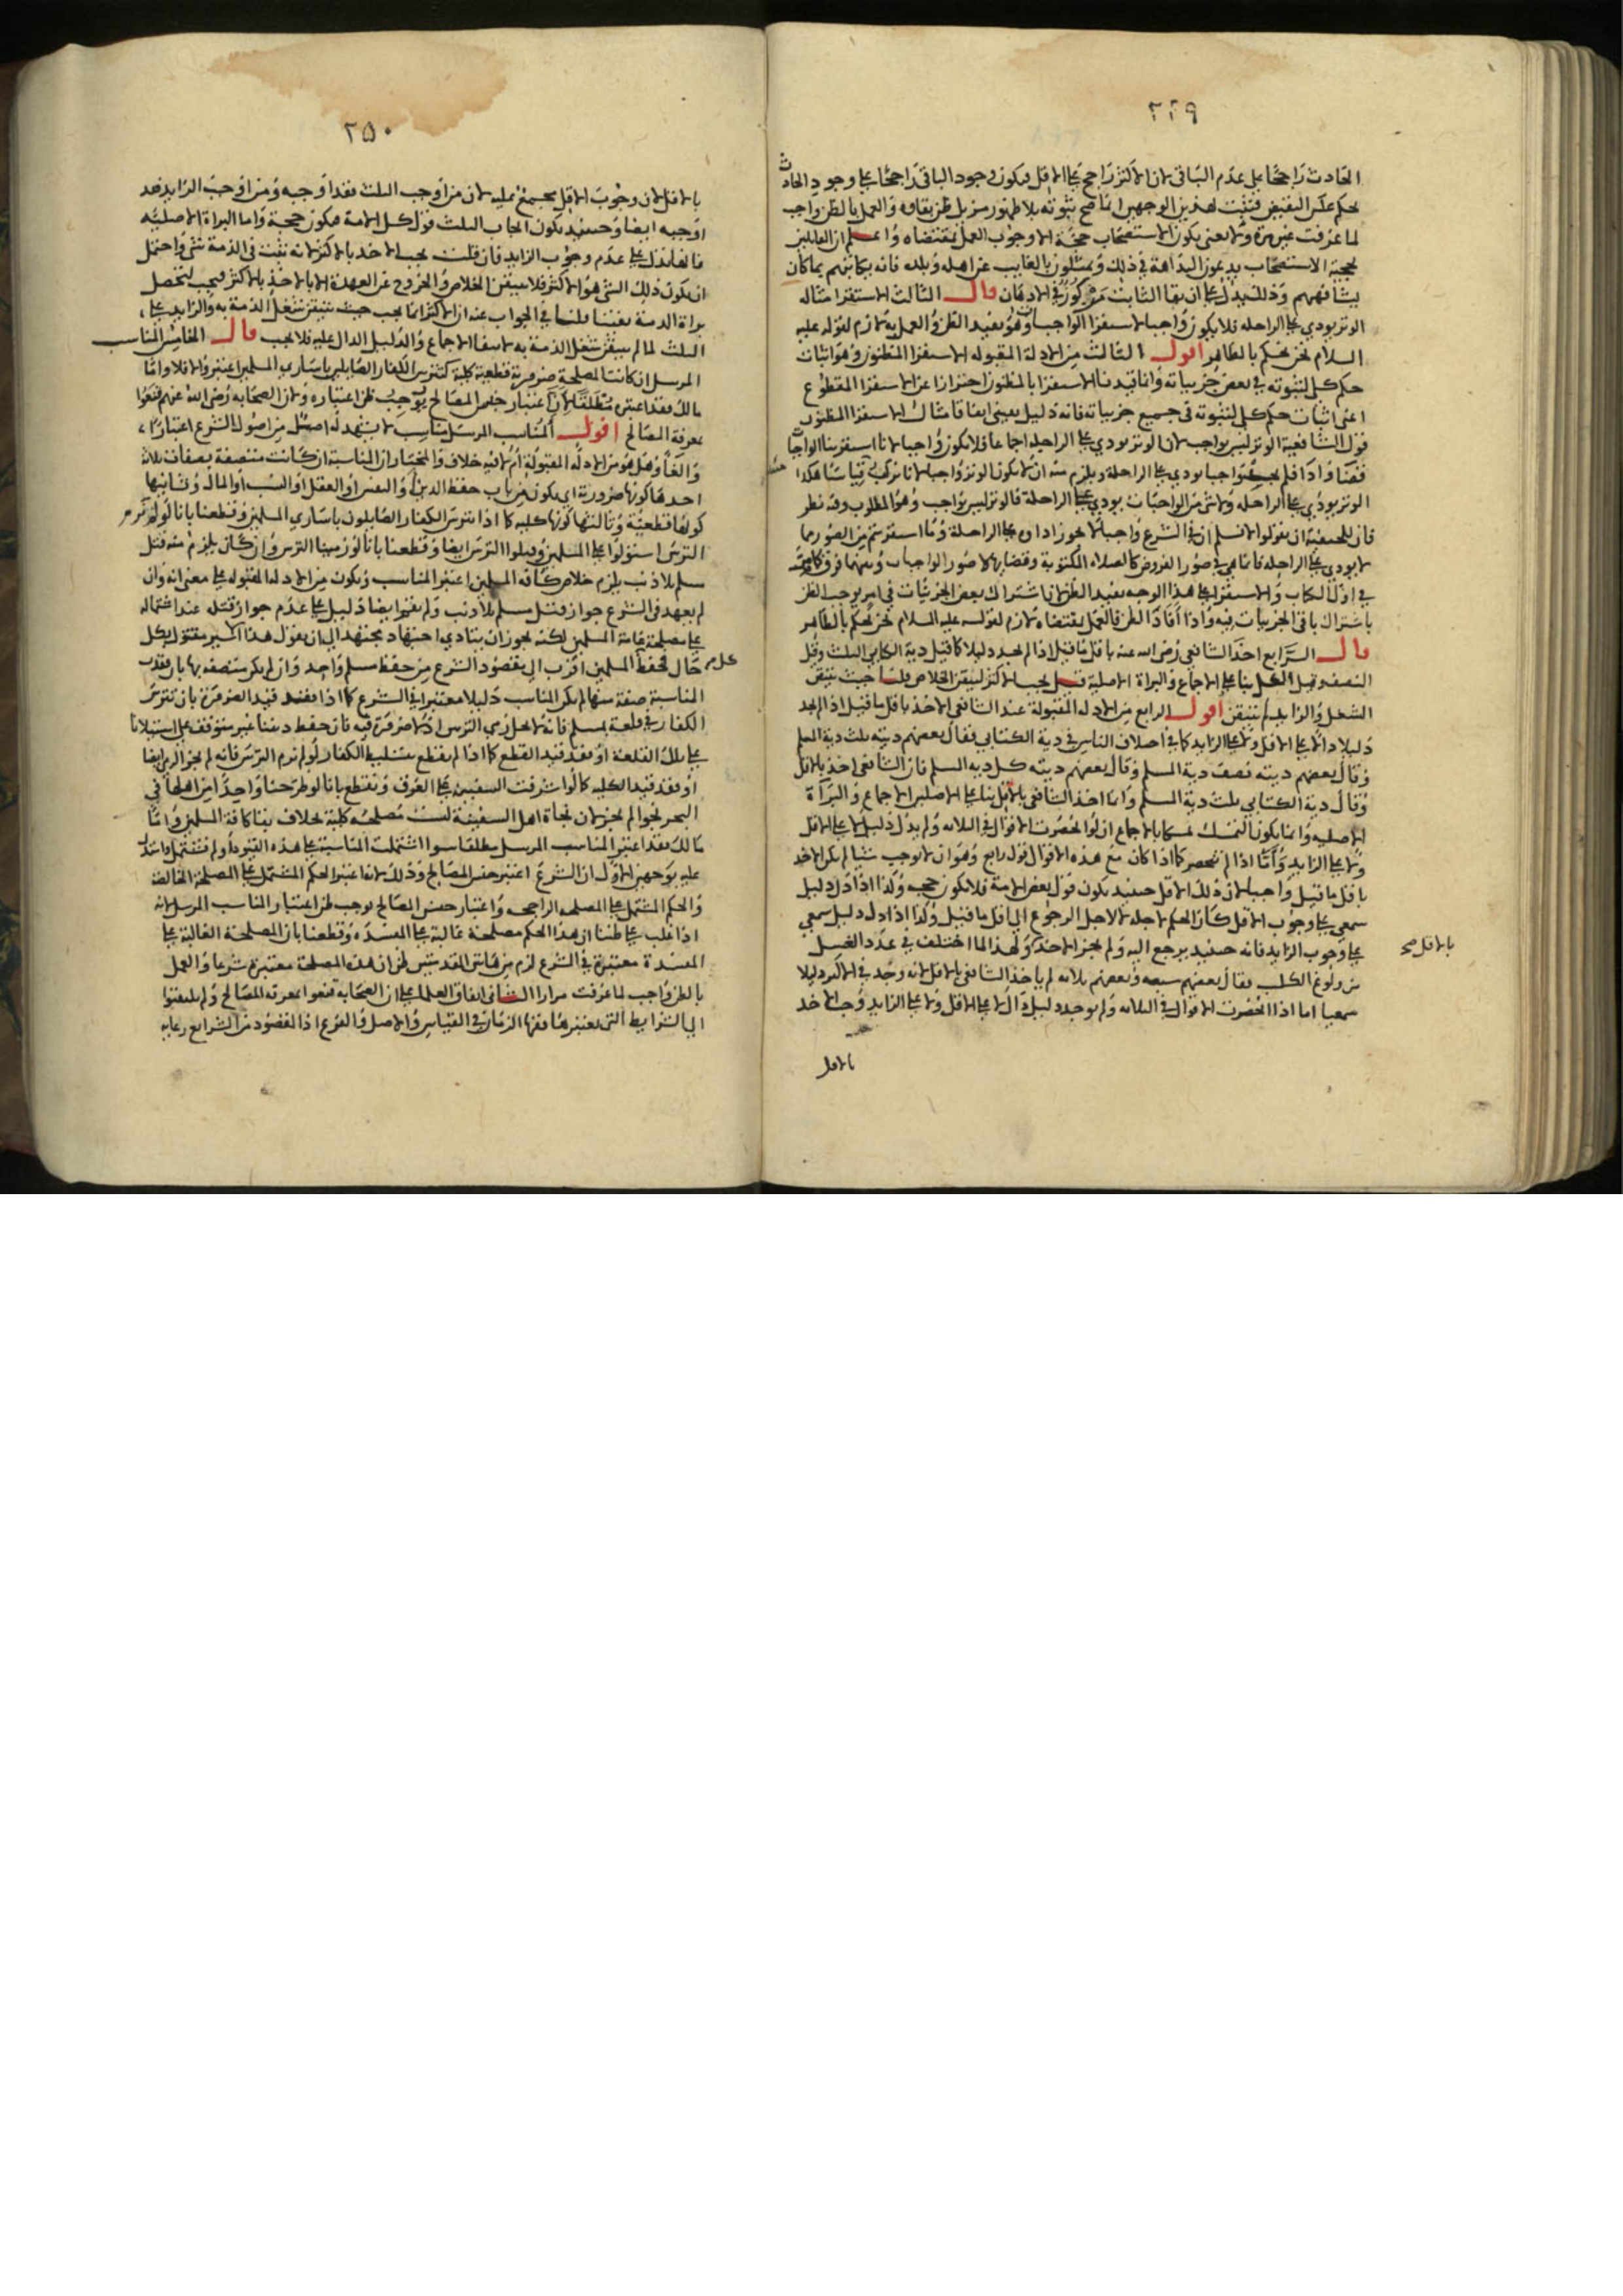 ٢٤٩
الحادث راجحا على عدم الباقي لان الاكثر راجح على الاقل فيكون وجود الباقي راجحا على وجود الحادث
بحكم عكس النقيض فثبت لهذين الوجهين ان ما صح ثبوته بلا ظهور مزيل ظن بقاوه والعمل بالظن واجب
لما عرفت غير مرة ولا يعنى بكون الاستصحاب حجة الا وجوب العمل بمقتضاه واعلم ان القايلين
بحجية الاستصحاب يدعون البداهة في ذلك ويمثلون بالغايب عن اهله وبلده فانه يكاتبهم بما كان
يشافههم وذلك يدل على ان بقا الثابت مركوز في الاذهان قال الثالث الاستقرا مثاله
الوتر يودي على الراحله فلا يكون واجبا لاستقرا الواجبات وهو يفيد الظن والعمل به لازم لقوله عليه
السلام نحن نحكم بالظاهر اقول الثالث من الادلة المقبوله الاستقرا المظنون وهو اثبات
حكم كلي لثبوته في بعض جزيياته وانما قيدنا الاستقرا بالمظنون احترازا عن الاستقرا المقطوع
اعني اثبات حكم كلي لثبوته في جميع جزيياته فانه دليل يقيني اتفاقا مثال الاستقرا المظنون
قول الشافعية الوتر ليس بواجب لان الوتر يودي على الراحلة اجماعا فلا يكون واجبا لانا استقرينا الواجبات
قضا واداء فلم نجد واجبا يودي على الراحلة ويلزم منه ان لا يكون الوتر واجبا لانا نركب قياسا هكذا
الوتر يودي على الراحله ولا شي من الواجبات يودي على الراحلة فالوتر ليس بواجب وهو المطلوب وفيه نظر
فان للحنفية ان يقولوا لا نسلم ان في الشرع واجبا لا يجوز اداوه على الراحلة وما استقريتم من الصور مما
لا يودي على الراحله فانما هي في صور الفروض كالصلاه المكتوبة وقضايها لا صور الواجبات وبينهما فرق كما مر
في اول الكتاب والاستقرا على هذا الوجه يفيد الظن لان اشتراك بعض الجزئيات في امر يوجب الظن
باشتراك باقي الجزييات فيه واذا افاد الظن فالعمل بمقتضاه لازم لقوله عليه السلام نحن نحكم بالظاهر
قال الرابع اخذ الشافعي رضي الله عنه باقل ما قيل اذا لم يجد دليلا كما قيل دية الكتابي الثلث وقيل
النصف وقيل الكل بناء على الاجماع والبراة الاصلية قيل يجب الاكثر ليتيقن الخلاص قلنا حيث تيقن
الشغل والزايد لم يتيقن اقول الرابع من الادلة المقبولة عند الشافعي الاخذ باقل ما قيل اذا لم يجد
دليلا دالا على الاقل ولا على الزايد كما في اختلاف الناس في دية الكتابي فقال بعضهم ديته ثلث دية المسلم
وقال بعضهم ديته نصف دية المسلم وقال بعضهم ديته كل دية المسلم فان الشافعي اخذ بالاقل
وقال دية الكتابي ثلث دية المسلم وانما اخذ الشافعي بالاقل بناء على الاصلين الاجماع والبرآة
الاصليه وانما يكون التمسك تمسكا بالاجماع ان لو انحصرت الاقوال في الثلاثه ولم يدل دليل لا على الاقل
ولا على الزايد واما اذا لم تنحصر كما اذا كان مع هذه الاقوال قول رابع وهو ان لا يوجب شيئا لم يكن الاخذ
باقل ما قيل واجبا لان ذلك الاقل حينيذ يكون قول بعض الامة فلا يكون حجه وكذا اذا دل دليل
سمعي على وجوب الاقل كان الحكم لاجله لا لاجل الرجوع الى اقل ما قيل وكذا اذا دل دليل سمعي
على وجوب الزايد فانه حينيذ يرجع اليه ولم يجز الاخذ ولهذا لما اختلف في عدد الغسل
بالاقل صح
من ولوغ الكلب فقال بعضهم سبعه وبعضهم ثلاثه لم ياخذ الشافعي بالاقل لانه وجد في الاكثر دليلا
سمعيا اما اذا انحصرت الاقوال في الثلاثه ولم يوجد دليل دال لا على الاقل ولا على الزايد وجب الاخذ
بالاقل
٢٥٠
بالاقل لان وجوب الاقل مجمع عليه لان من اوجب الثلث فقد اوجبه ومن اوجب الزايد فقد
اوجبه ايضا وحينيذ يكون ايجاب الثلث قول كل الامة فيكون حجة واما البراة الاصليه
فانها تدل على عدم وجوب الزايد فان قلت يجب الاخذ بالاكثر لانه ثبت في الذمة شي واحتمل
ان يكون ذلك الشي هو الاكثر فلا يتيقن الخلاص والخروج عن العهدة الا بالاخذ بالاكثر فيجب ليحصل
براة الذمة يقينا قلنا في الجواب عنه ان الاكثر انما يجب حيث تيقن شغل الذمة به والزايد على
الثلث لما لم يتيقن شغل الذمة به لانتفا الاجماع والدليل الدال عليه فلا يجب قال الخامس المناسب
المرسل ان كانت المصلحة ضرورية قطعية كلية كتترس الكفار الصايلين باسارى المسلمين اعتبر والا فلا واما
مالك فقد اعتبره مطلقا لان اعتبار جنس المصالح يوجب ظن اعتباره ولان الصحابه رضي الله عنهم قنعوا
بمعرفة المصالح اقول المناسب المرسل مناسب لا يشهد له اصل من اصول الشرع اعتبارا
والغاء وهل هو من الادلة المقبولة ام لا فيه خلاف والمختار ان المناسبة ان كانت متصفة بصفات ثلاث
احدها كونها ضرورية اي يكون من باب حفظ الدين والنفس او العقل او النسب او المال وثانيها
كونها قطعية وثالثها كونها كليه كما اذا تترس الكفار الصايلون باسارى المسلمين وقطعنا بانا لو لم نرم
الترس استولوا على المسلمين وقتلوا الترس ايضا وقطعنا بانا لو رمينا الترس وان كان يلزم منه قتل
مسلم بلا ذنب يلزم خلاص كافة المسلمين اعتبر المناسب ويكون من الادلة المقبوله على معنى انه وان
لم يعهد في الشرع جواز قتل مسلم بلا ذنب ولم يقم ايضا دليل على عدم جواز قتله عند اشتماله
على مصلحة عامة المسلمين لكنه يجوز ان يتادى اجتهاد مجتهد الى ان يقول هذا الاسير مقتول بكل
حال فحفظ المسلمين اقرب الى مقصود الشرع من حفظ مسلم واحد وان لم يكن متصفه بها بل فقدت
المناسبة صفة منها لم يكن المناسب دليلا معتبرا في الشرع كما اذا فقد قيد الضرورة بان تترس
الكفار في قلعة بمسلم فانه لا يحل رمي الترس اذ لا ضرورة فيه فان حفظ ديننا غير متوقف على استيلائنا
على تلك القلعة او فقد قيد القطع كما اذا لم نقطع بتسليط الكفار لو لم نرم الترس فانه لم يجز الرمي ايضا
او فقد قيد الكليه كما لو اشرفت السفينه على الغرق ونقطع بانا لو طرحنا واحدا من اهلها في
البحر لنجوا لم يجز لان نجاة اهل السفينة ليست مصلحه كلية بخلاف بقاء كافة المسلمين واما
مالك فقد اعتبر المناسب المرسل مطلقا سوا اشتملت المناسبة على هذه القيود او لم تشتمل واستدل
عليه بوجهين الاول ان الشرع اعتبر جنس المصالح وذلك لانه اعتبر الحكم المشتمل على المصلحة الخالصة
والحكم المشتمل على المصلحه الراجحه واعتبار جنس المصالح يوجب ظن اعتبار المناسب المرسل لانه
اذا غلب على ظننا ان هذا الحكم مصلحة غالبة على المفسده وقطعنا بان المصلحة الغالبة على
المفسدة معتبرة في الشرع لزم من هاتين المقدمتين ظن ان هذه المصلحة معتبرة شرعا والعمل
بالظن واجب لما عرفت مرارا الثاني اتفاق العلما على ان الصحابه قنعوا بمعرفه المصالح ولم يلتفتوا
الى الشرايط التي يعتبرها فقها الزمان في القياس والاصل والفرع اذ المقصود من الشرايع رعاية